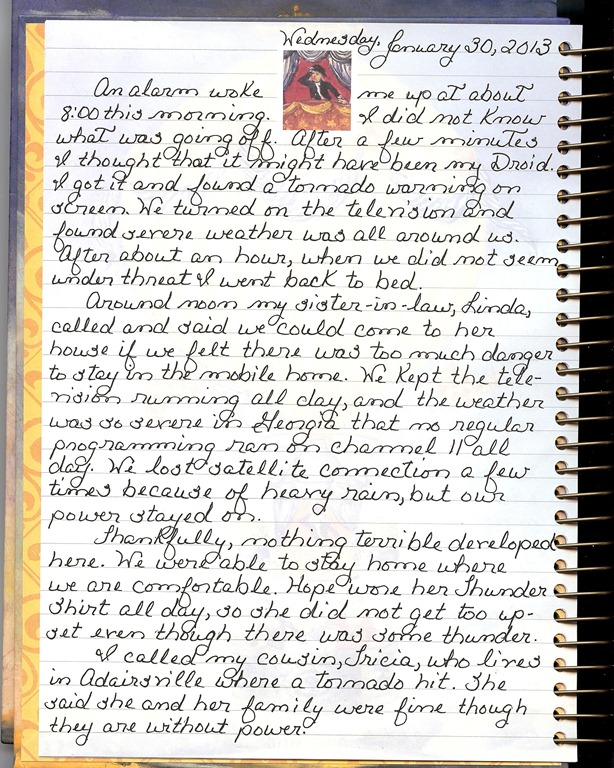 Wednesday, January 30, 2013
An alarm woke me up at about
8:00 this morning. I did not know
what was going off. After a few minutes
I thought that it might have been my Droid.
I got it and found a tornado warning on
screen. We turned on the television and
found severe weather was all around us.
After about an hour, when we did not seem
under threat I went back to bed.
Around noon my sister-in-law, Linda,
called and said we could come to her
house if we felt there was too much danger
to stay in the mobile home. We kept the tele-
vision running all day, and the weather
was so severe in Georgia that no regular
programming ran on channel 11 all
day. We lost satellite connection a few
times because of heavy rain, but our
power stayed on.
Thankfully, nothing terrible developed
here. We were able to stay home where
we are comfortable. Hope wore her Thunder
Shirt all day, so she did not get too up-
set even though there was some thunder.
I called my cousin, Tricia, who lives
in Adairsville where a tornado hit. She
said she and her family were fine though
they are without power.